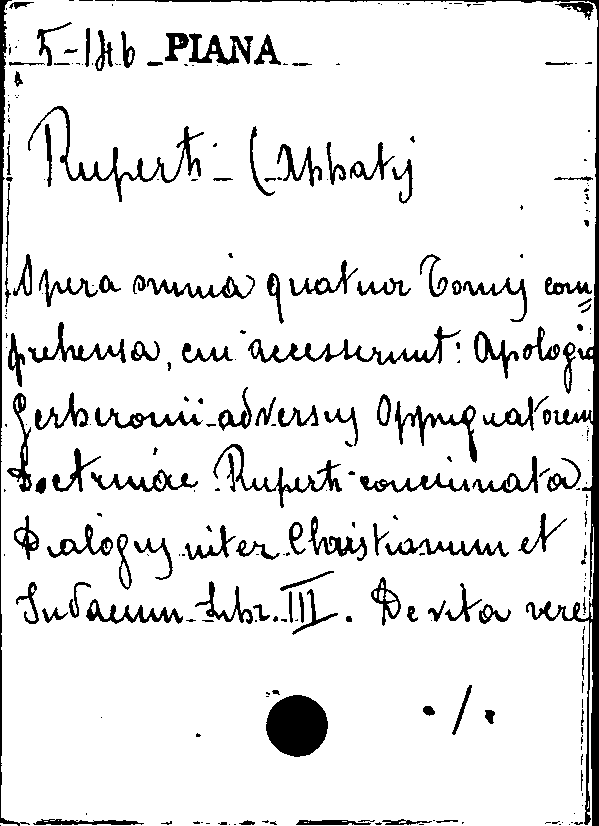 5-146 PIANA
Ruperti (Abbatis
Opera omnia quatuor Tomis com=
prehensa, cui accesserunt: Apologia
Gerberonii adversus Oppugnatorem
Doctrinae Ruperti concinnata
Dialogus inter Christianum et
Judaeum Libr. III. De vita vere
./.